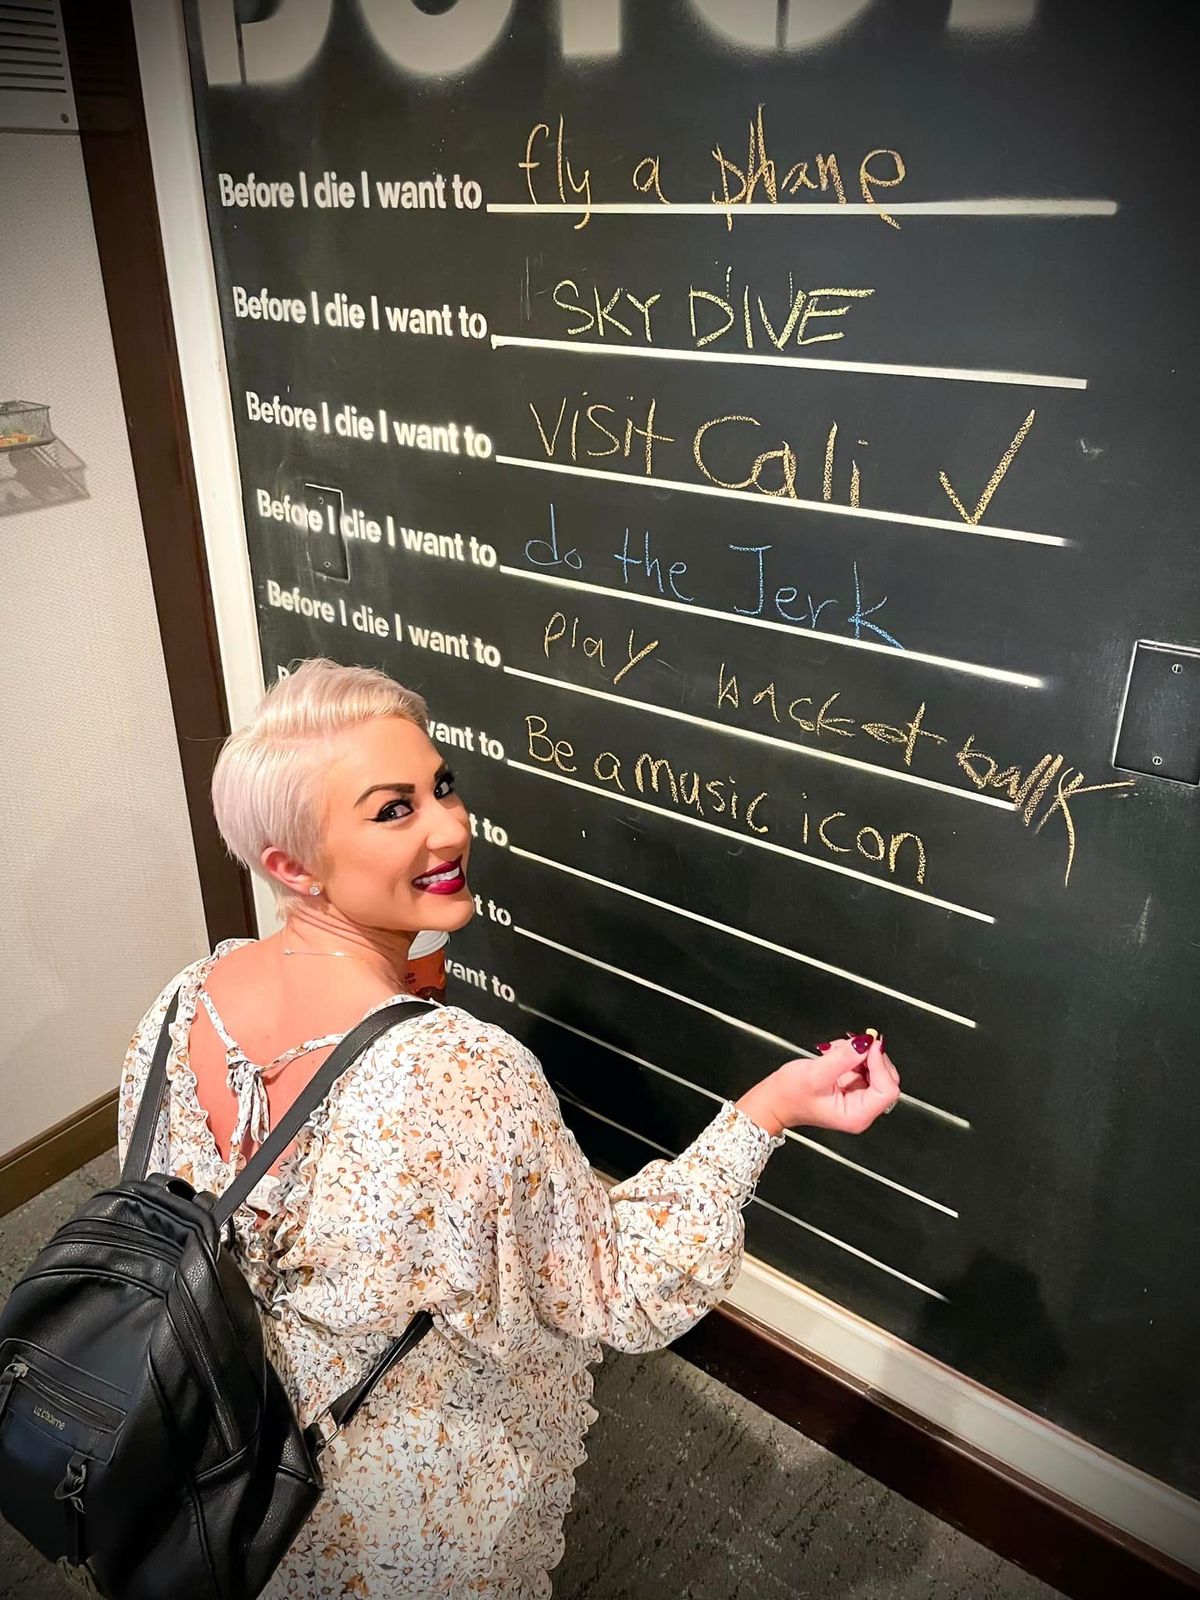 Before I die I want to fly a phane
Before I die I want to SKY DIVE
Before I die I want to visit Cali ✓
Before I die I want to do the Jerk
Before I die I want to play basket
want to Be a music icon
t to
t to
want to
liz claiborne